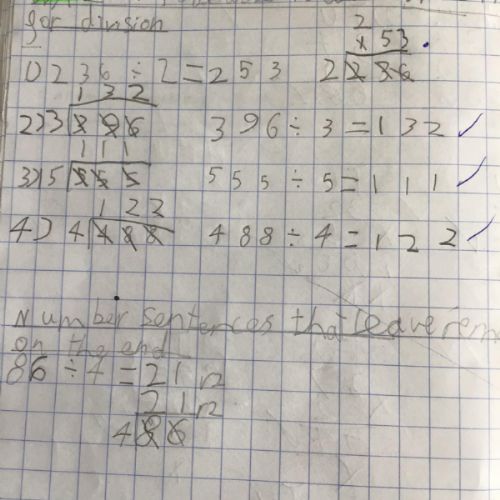 for division
2
x 53.
1) 236 ÷ 2 = 253 2 236
132
2) 3 396 396 ÷ 3 = 132 ✓
111
3) 5 555 555 ÷ 5 = 111 ✓
122
4) 4 488 488 ÷ 4 = 122 ✓
Number sentences that leave rem
on the end
86 ÷ 4 = 21 r2
21 r2
4 86